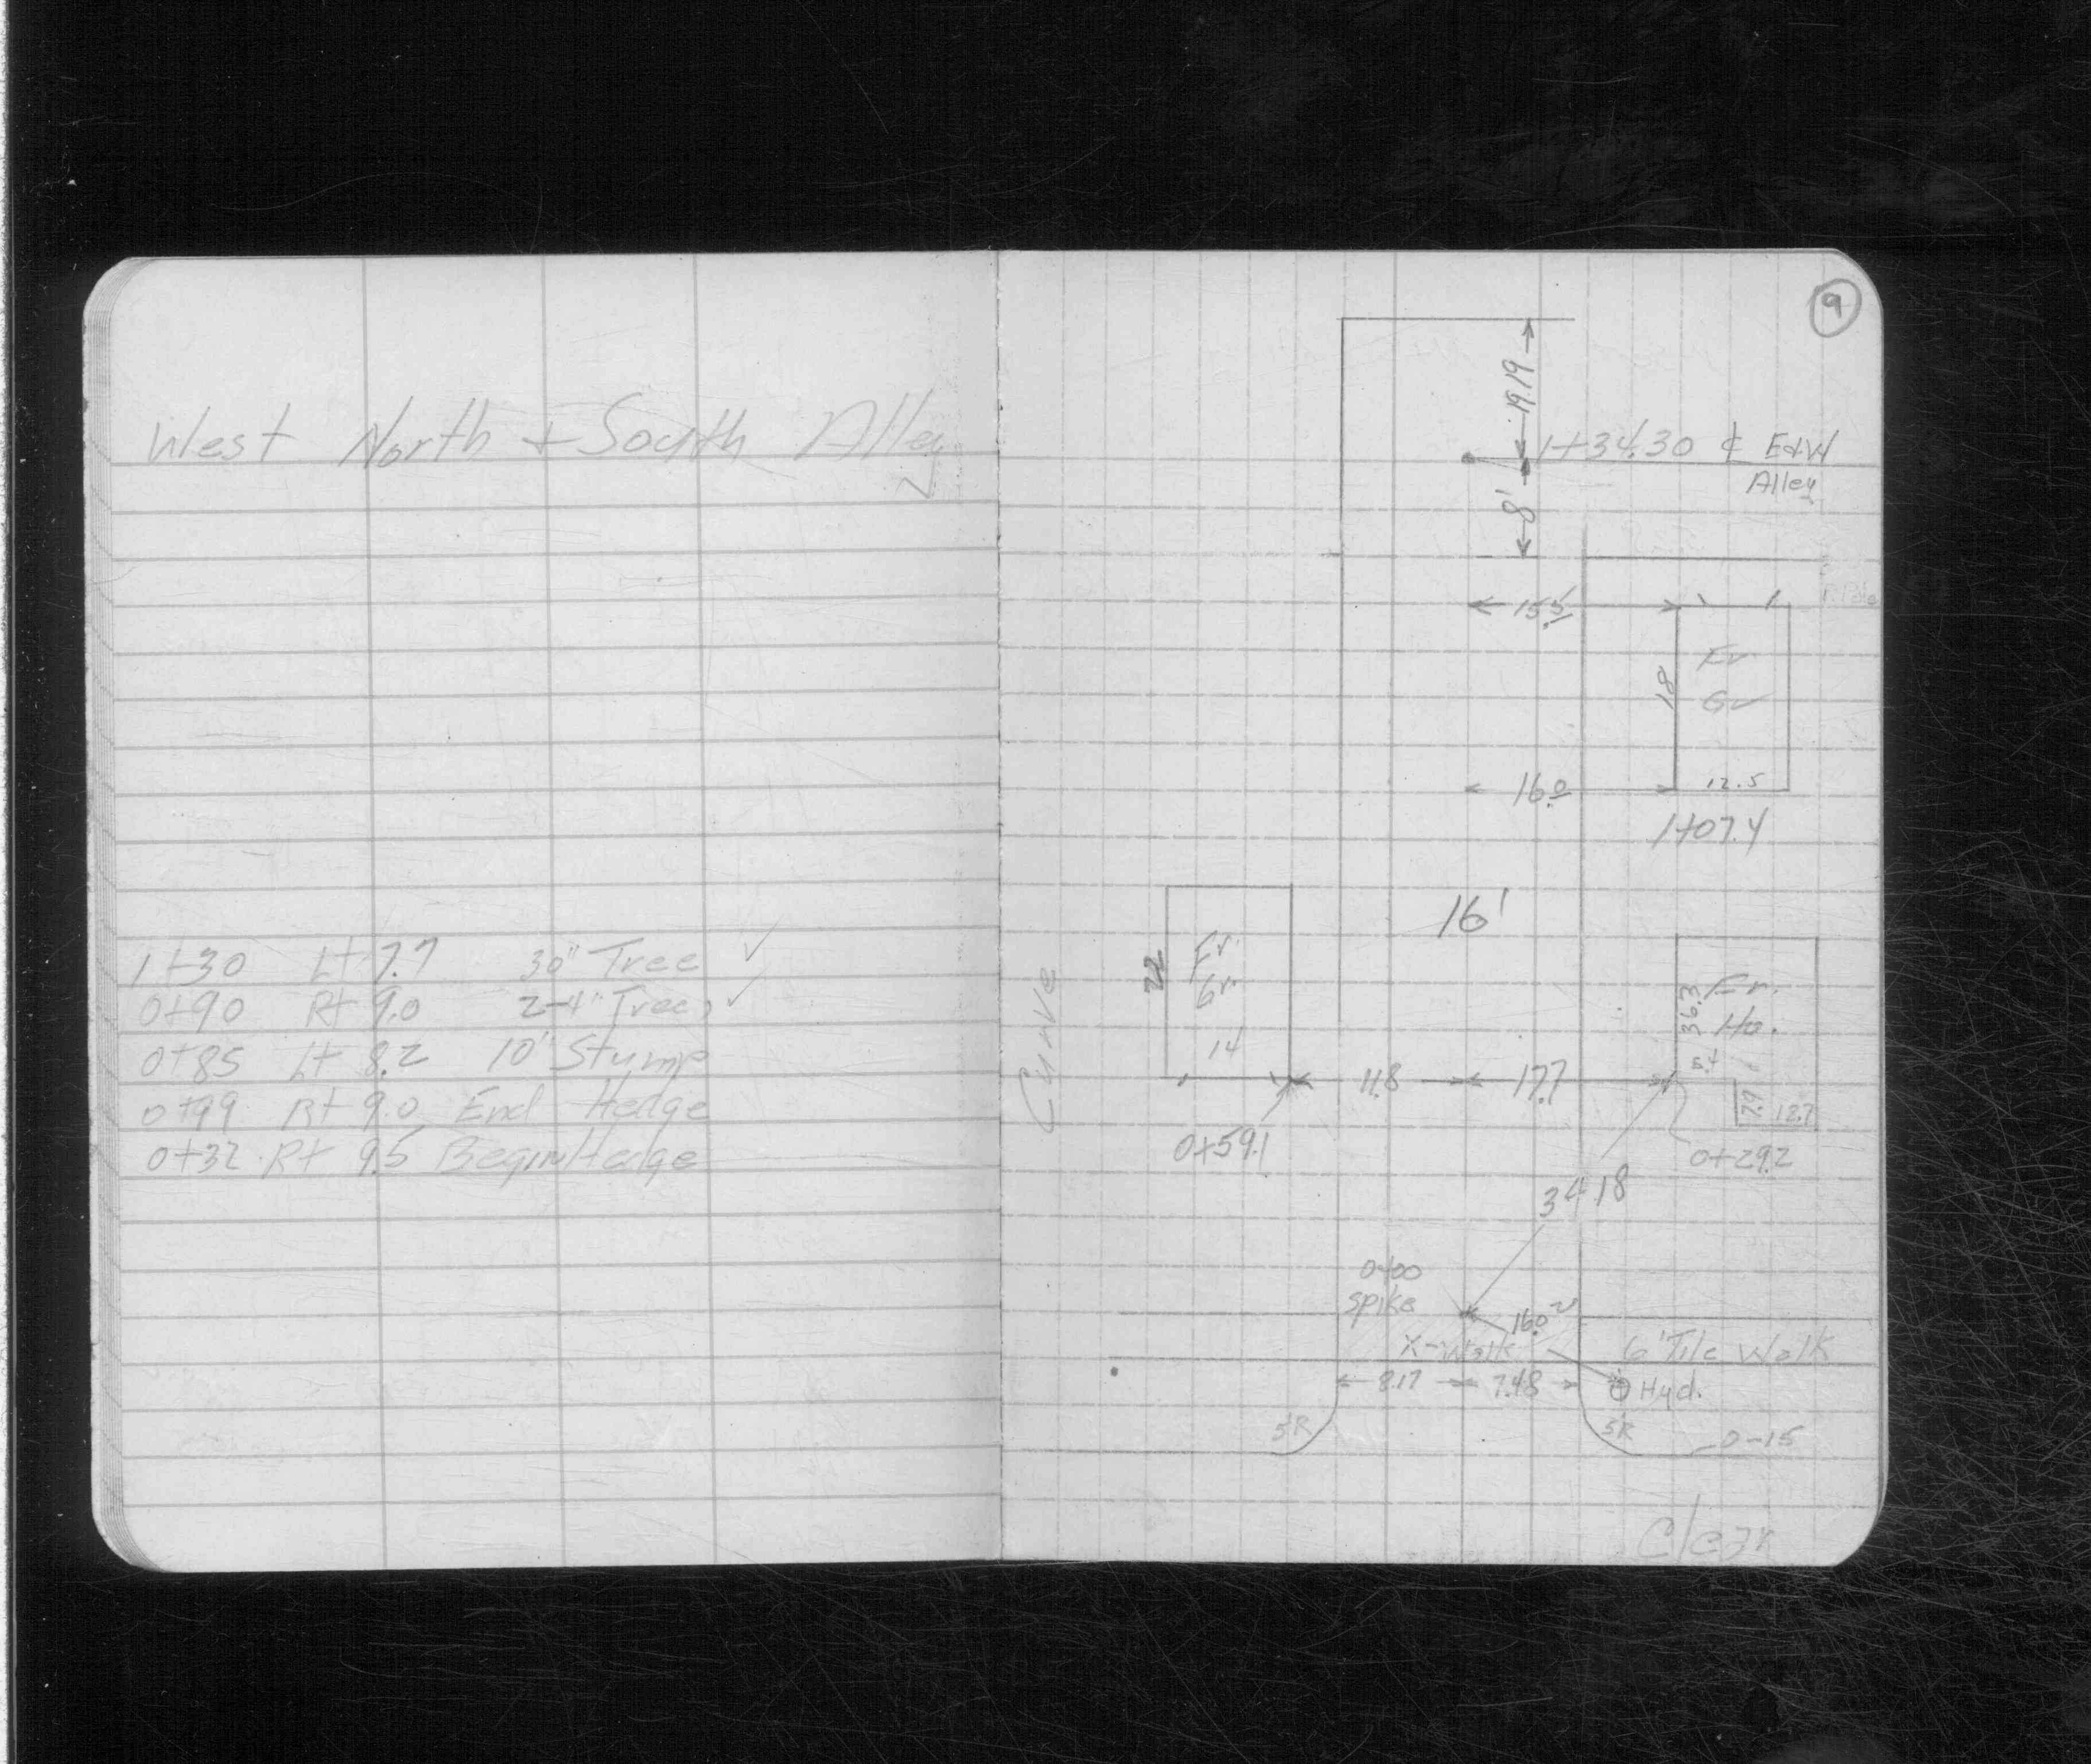 West North + South Alley
1+30 Lt 7.7 30" Tree ✓
0+90 Rt 9.0 2-4" Trees ✓
0+85 Lt 8.2 10" Stump
0+49 Rt 9.0 End Hedge
0+32 Rt 9.5 Begin Hedge
9
19.19
1+34.30 ℄ E+W
Alley
8'
15.5
Fr
Gr
18
16.0
12.5
1+07.4
16'
Fr.
Gr.
22
14
Curve
Fr.
Ho.
36.3
5.4
11.8
17.7
7.9
12.7
0+59.1
0+29.2
34.18
0+00
spike
16.0
X-Walk
6' Tile Walk
8.17
7.48
Hyd.
5R
5R
0-15
Clear